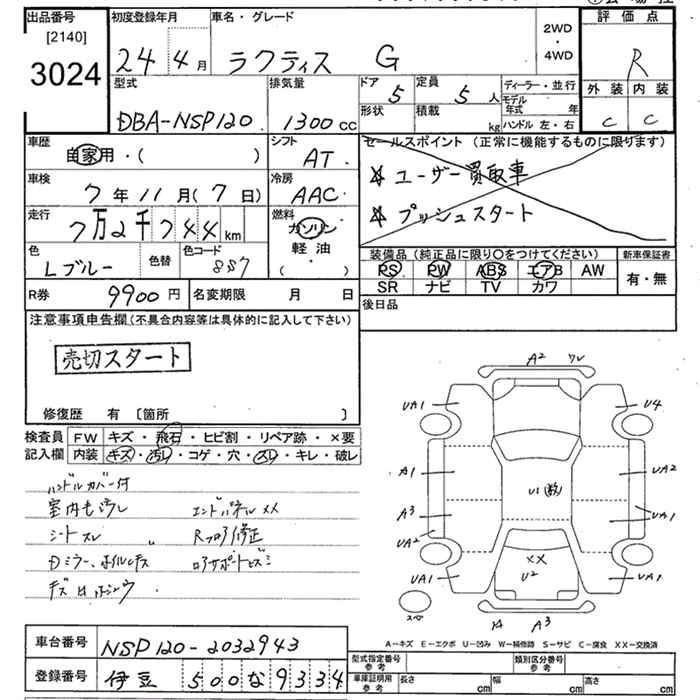 出品番号
[2140]
3024
初度登録年月
24年4月
車名・グレード
ラクティス G
2WD
・
4WD
評価点
R
外装 内装
C C
型式
DBA-NSP120
排気量
1300cc
ドア
5
定員
5人
形状
積載
kg
ディーラー・並行
モデル年式 年
ハンドル 左・右
車歴
自家用・( )
シフト
AT
車検
7年11月(7日)
冷房
AAC
走行
7万2千744km
燃料
ガソリン
軽油
( )
色
Lブルー
色替
色コード
8S7
セールスポイント (正常に機能するものに限ります)
☆ユーザー買取車
☆プッシュスタート
装備品 (純正品に限り〇をつけてください)
新車保証書
PS PW ABS エアB AW
SR ナビ TV カワ
有・無
R券 9900円
名変期限 月 日
後日品
注意事項申告欄(不具合内容等は具体的に記入して下さい)
売切スタート
修復歴 有 〔箇所 〕
検査員記入欄
FW キズ・飛石・ヒビ割・リペア跡・×要
内装 キズ・汚レ・コゲ・穴・スレ・キレ・破レ
ハンドルカバー付
室内も汚レ エンドパネルXX
シートスレ
A2
UA1
U4
A1
UA2
U1(数)
A3
UA1
UA2
XX
U2
UA1
UA1
スペ
A3
A-キズ E-エクボ U-凹み W-補修跡 S-サビ C-腐食 XX-交換済
車台番号 NSP120-2032943
登録番号 伊豆 500な9334
型式指定番号
参考
類別区分番号
参考
車庫証明用
参考
長さ cm
幅 cm
高さ cm